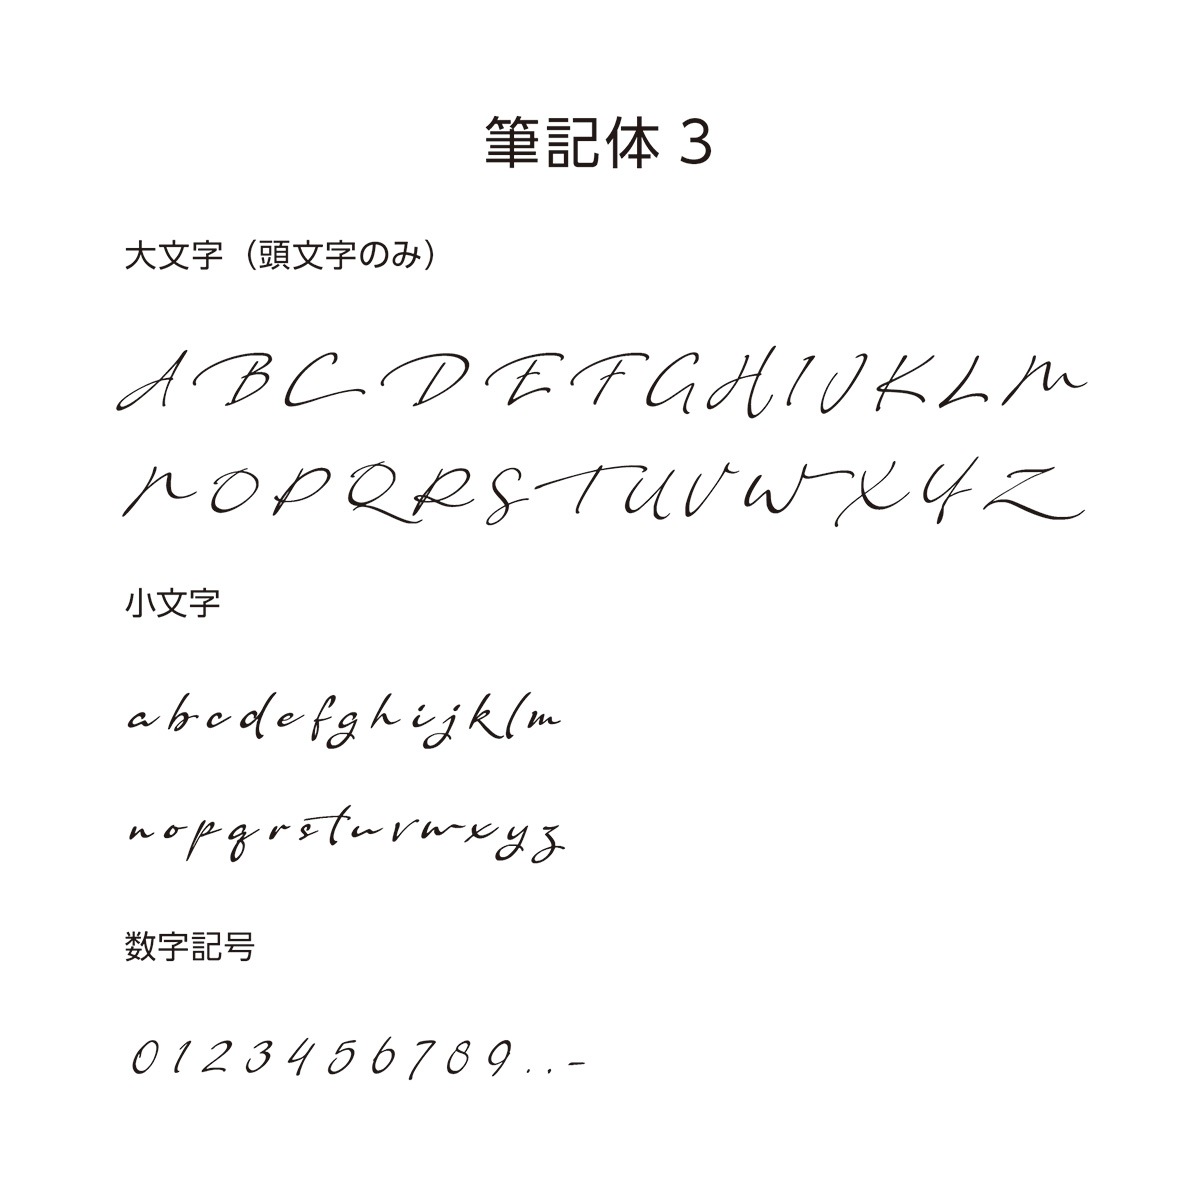 筆記体 3
大文字（頭文字のみ）
A B C D E F G H I J K L M
N O P Q R S T U V W X Y Z
小文字
a b c d e f g h i j k l m
n o p q r s t u v w x y z
数字記号
0 1 2 3 4 5 6 7 8 9 . . -